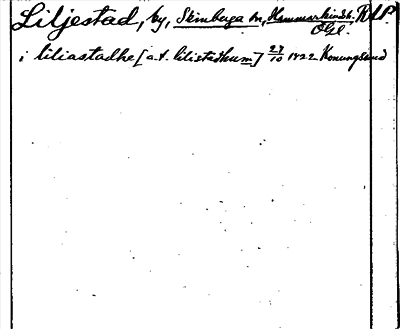 Liljestad, by, Skönberga sn, Hammarkinds h. RAP.
Ögl.
i liliastadhe [a.t. lilistadhum] 27/10 1422 Konungssund